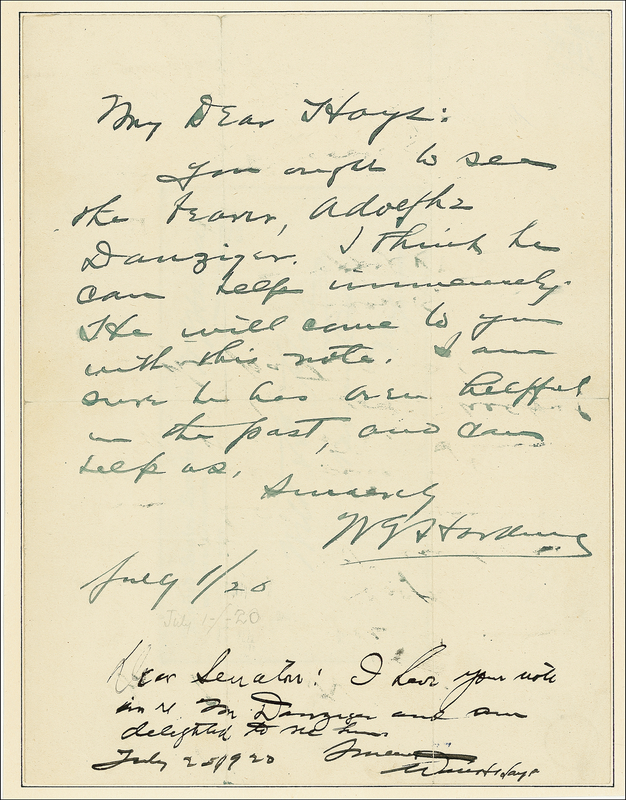 My Dear Hays:
You ought to see
the bearer, Adolphe
Danziger. I think he
can help immensely.
He will come to you
with this note. I am
sure he has been helpful
in the past, and can
help us.
Sincerely
WG Harding
July 1/20
July 1-/-20
Dear Senator: I have your note
in re Mr Danziger and am
delighted to see him.
July 2 1920 Sincerely
Will H Hays